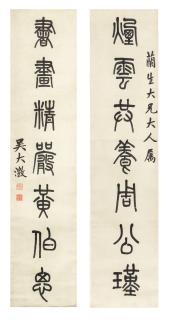 蘭生大兄大人屬
煙雲共養周公瑾
書畫精嚴黃伯思
吳大澂